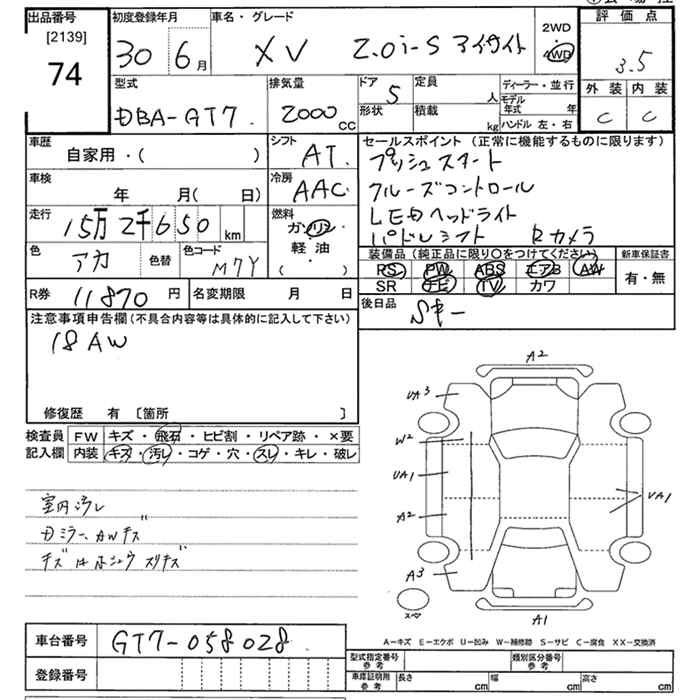 出品番号
[2139]
74
初度登録年月
30 6月
車名・グレード
XV 2.0i-S アイサイト
2WD
4WD
評価点
3.5
外装 内装
C C
型式
DBA-GT7
排気量
2000 CC
ドア 5
形状
定員 人
積載 kg
ディーラー・並行
モデル年式 年
ハンドル 左・右
車歴
自家用・( )
シフト
AT
セールスポイント (正常に機能するものに限ります)
プッシュスタート
クルーズコントロール
LEDヘッドライト
パドルシフト Rカメラ
車検
年 月( 日)
冷房
AAC
走行
15万2千650 km
燃料
ガソリン
軽・油
( )
色 アカ 色替
色コード M7Y
装備品 (純正品に限り〇をつけてください)
RS PW ABS エアB AW
SR ナビ TV カワ
新車保証書
有・無
R券 11870円
名変期限 月 日
後日品 Sキー
注意事項申告欄(不具合内容等は具体的に記入して下さい)
18AW
修復歴 有 〔箇所 〕
検査員 記入欄
FW キズ・飛石・ヒビ割・リペア跡・×要
内装 キズ・汚レ・コゲ・穴・スレ・キレ・破レ
室内汚レ
Dミラー、AWキズ
キズ
A2
UA3
W2
UA1
A2
A3
UA1
A1
スペア
A-キズ E-エクボ U-凹み W-補修跡 S-サビ C-腐食 XX-交換済
車台番号 GT7-058028
登録番号
型式指定番号 参考
類別区分番号 参考
車庫証明用 参考
長さ cm
幅 cm
高さ cm